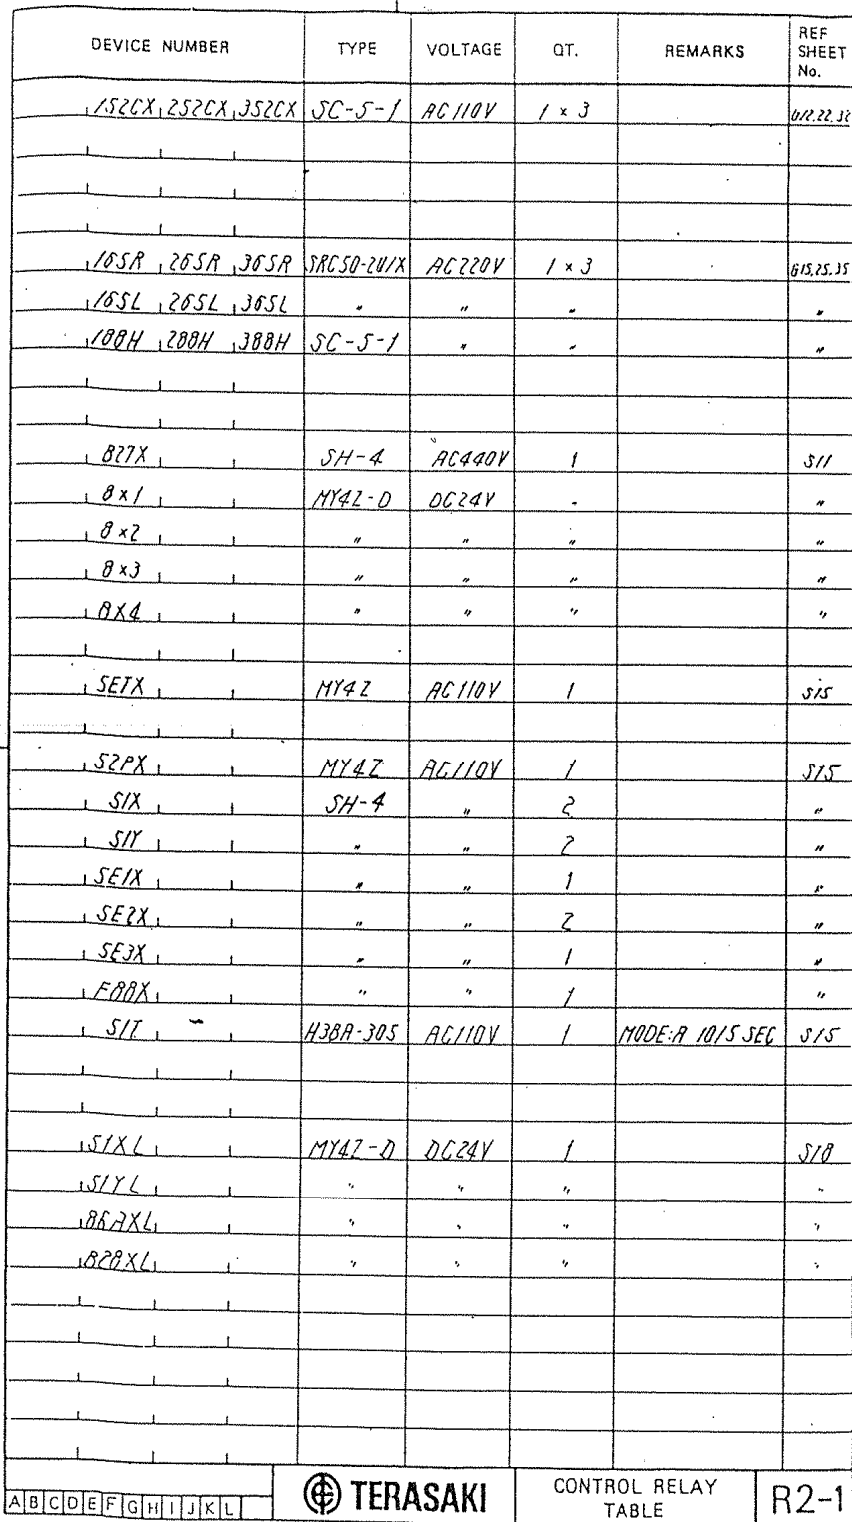 DEVICE NUMBER TYPE VOLTAGE QT. REMARKS REF SHEET No.
152CX 252CX 352CX SC-5-1 AC110V 1 × 3 G12.22.32
165R 265R 365R SRC50-2U/X AC220V 1 × 3 G15.25.35
165L 265L 365L " " " "
188H 288H 388H SC-5-1 " " "
B27X SH-4 AC440V 1 S11
8×1 MY4Z-D DC24V " "
8×2 " " " "
8×3 " " " "
8X4 " " " "
SETX MY4Z AC110V 1 S15
52PX MY4Z AC110V 1 S15
S1X SH-4 " 2 "
S1Y " " 2 "
SE1X " " 1 "
SE2X " " 2 "
SE3X " " 1 "
F88X " " 1 "
S1T H3BA-305 AC110V 1 MODE:A 10/5 SEC S15
S1XL MY4Z-D DC24V 1 S18
S1YL " " " "
86AXL " " " "
B28XL " " " "
A B C D E F G H I J K L
TERASAKI
CONTROL RELAY
TABLE
R2-1